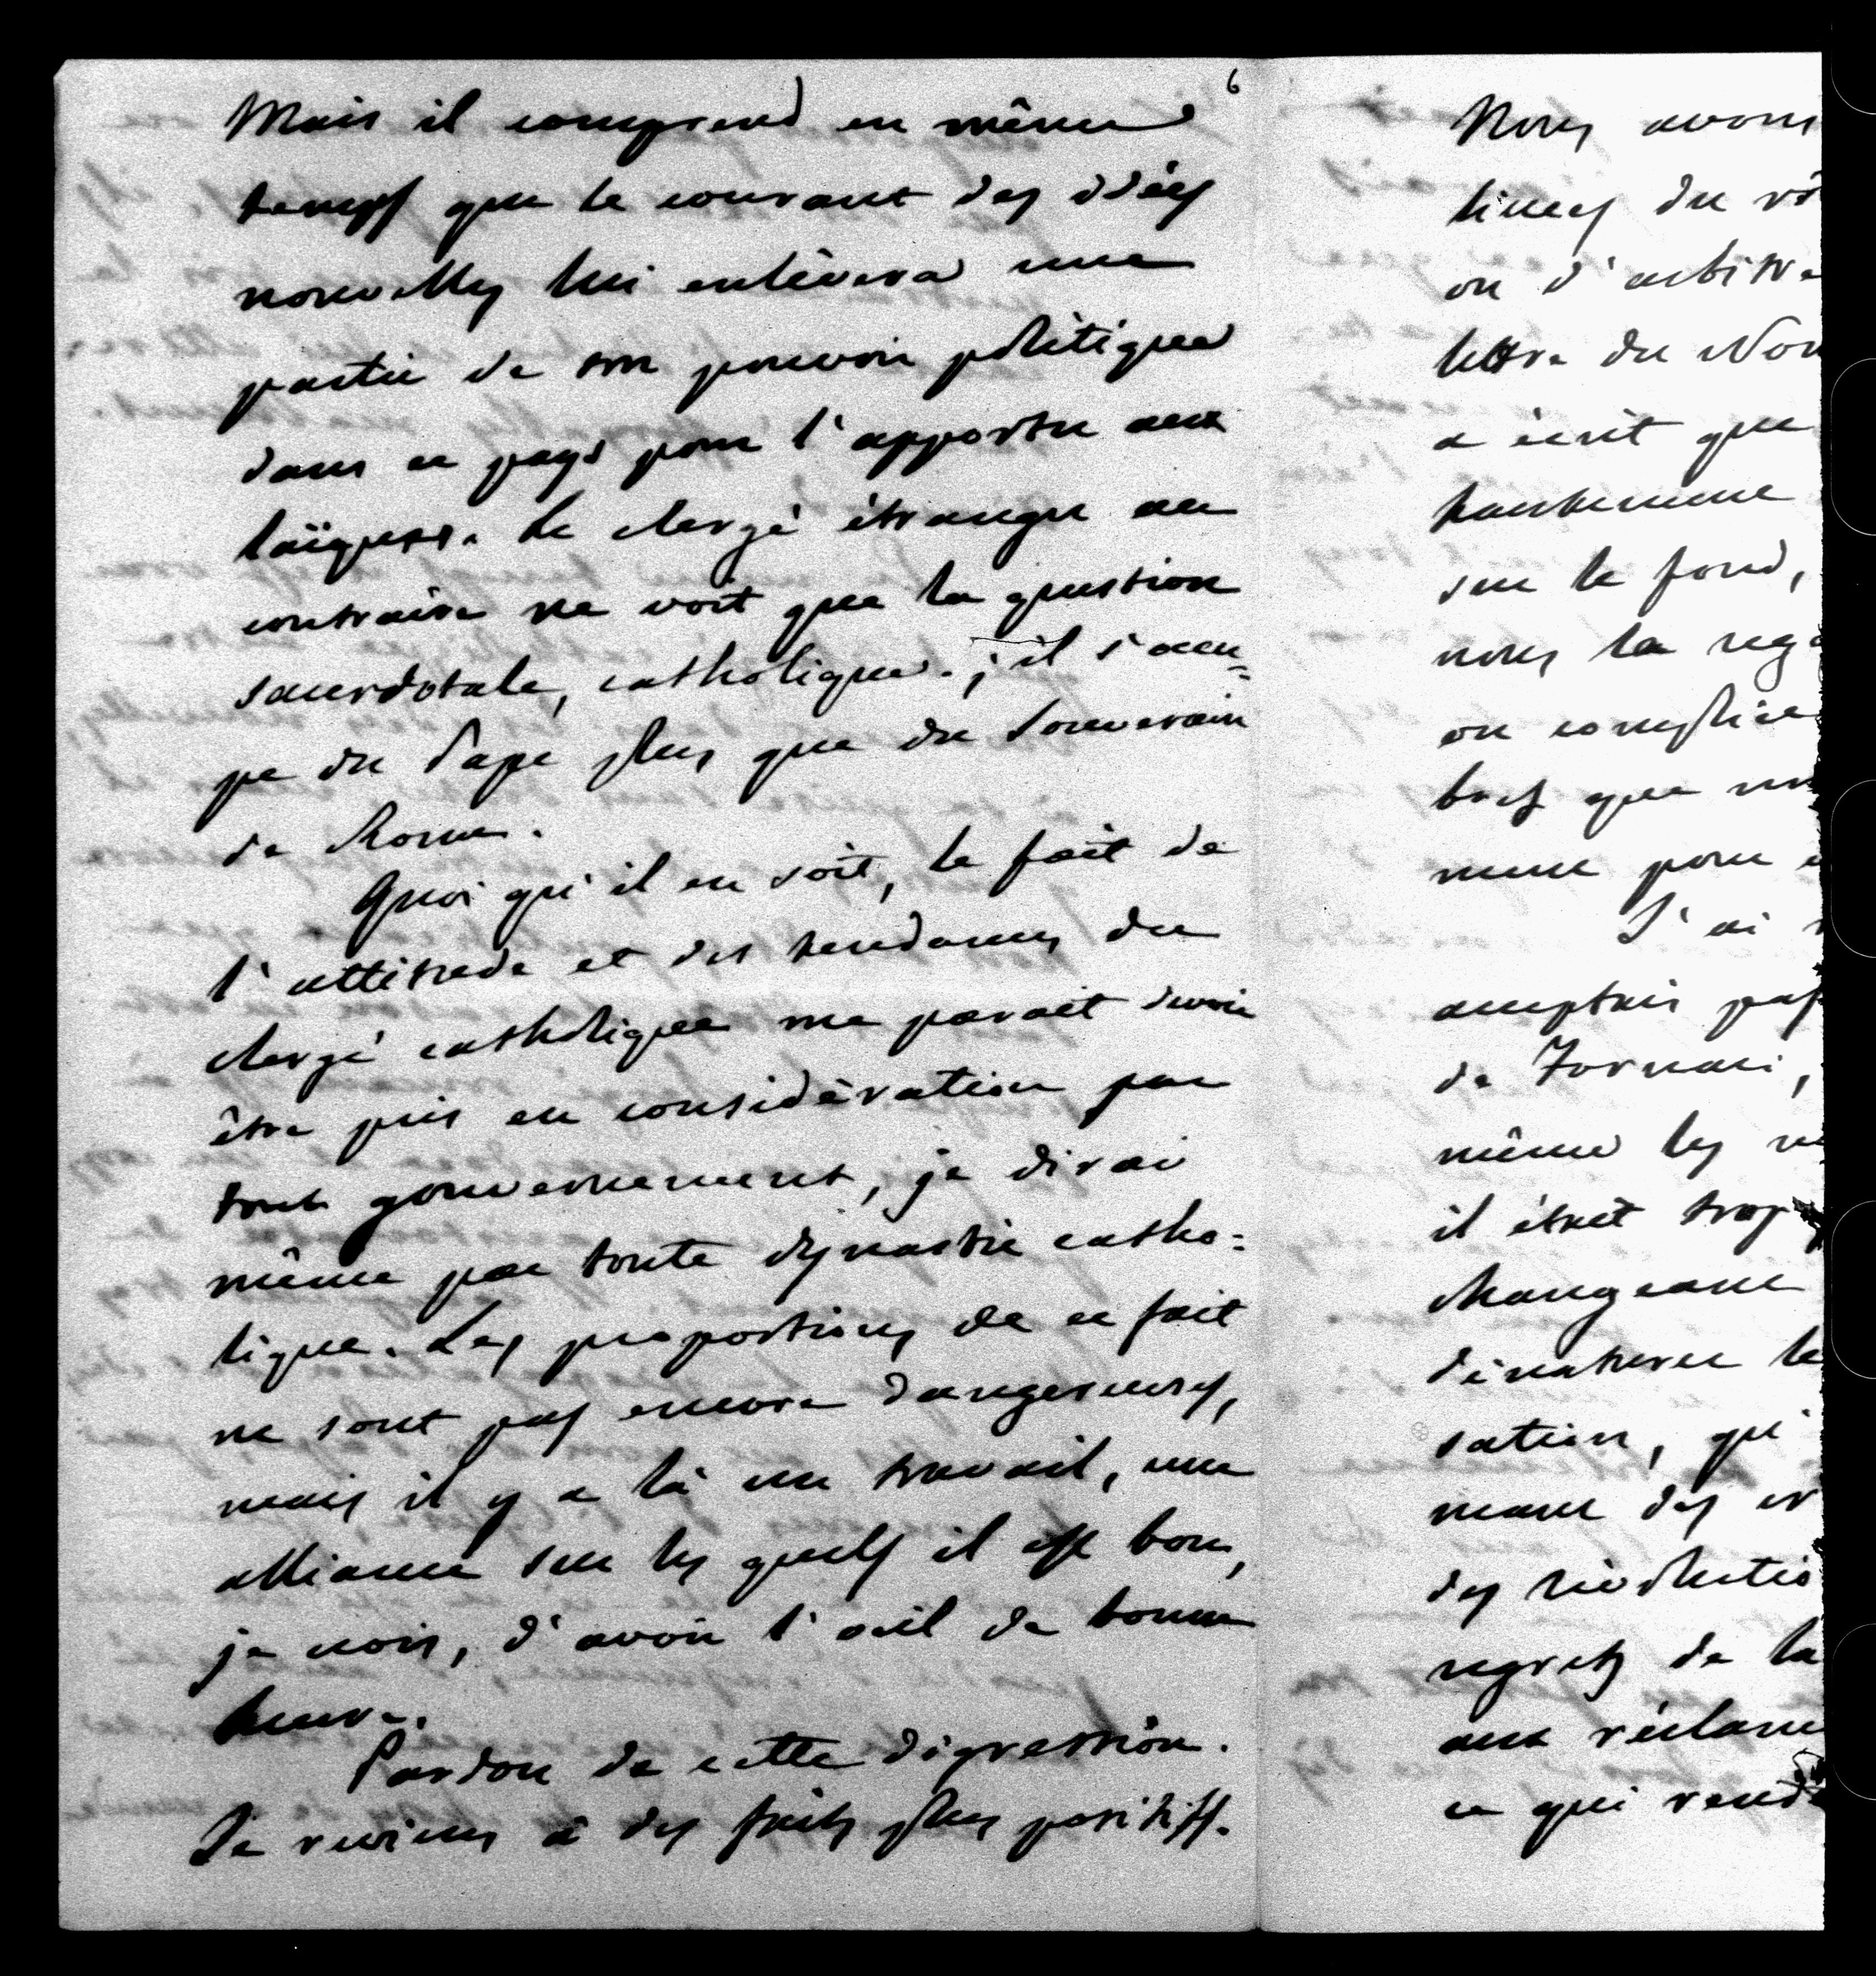 6
Mais il comprend en même
temps que le courant des idées
nouvelles lui enlèvera une
partie de son pouvoir politique
dans ce pays pour l'apporter aux
laïques. Le clergé étranger au
contraire ne voit que la question
sacerdotale, catholique ; il s'occu-
pe du Pape plus que du Souverain
de Rome.
Quoi qu'il en soit, le fait de
l'attitude et des tendances du
clergé catholique me parait devoir
être pris en considération par
tout gouvernement, je dirai
même par toute dynastie catho=
lique. Les proportions de ce fait
ne sont pas encore dangereuses,
mais il y a là un travail, une
alliance sur les quels il est bon,
je crois, d'avoir l'œil de bonne
heure.
Pardon de cette digression.
Je reviens à des faits plus positifs.
Nous avons
times du
ou d'arbitra
lettre du Non
a écrit que
hautement
sur le fond,
nous la
ou complice
bref que
ment pour
J'ai
acceptais pas
de Fornari,
même les
il était trop
changeant
dénaturer le
sation, qui
mant des
des révolutio
regrets de la
aux réclam
ce qui rend